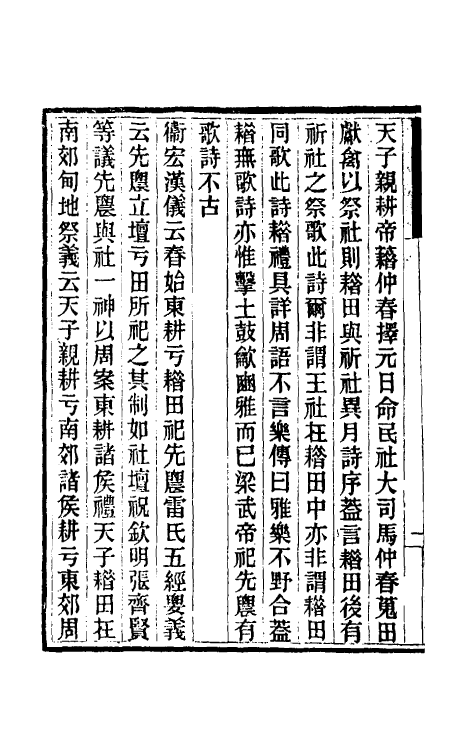 天子親耕帝藉仲春擇元日命民社大司馬仲春蒐田
獻禽以祭社則耤田與祈社異月詩序葢言耤田後有
祈社之祭歌此詩爾非謂王社在耤田中亦非謂耤田
同歌此詩耤禮具詳周語不言樂傳曰雅樂不野合葢
耤無歌詩亦惟擊土鼓龡豳雅而已梁武帝祀先農有
歌詩不古
衞宏漢儀云春始東耕亏耤田祀先農雷氏五經要義
云先農立壇亏田所祀之其制如社壇祝欽明張齊賢
等議先農與社一神以周案東耕諸矦禮天子耤田在
南郊甸地祭義云天子親耕亏南郊諸矦耕亏東郊周
二